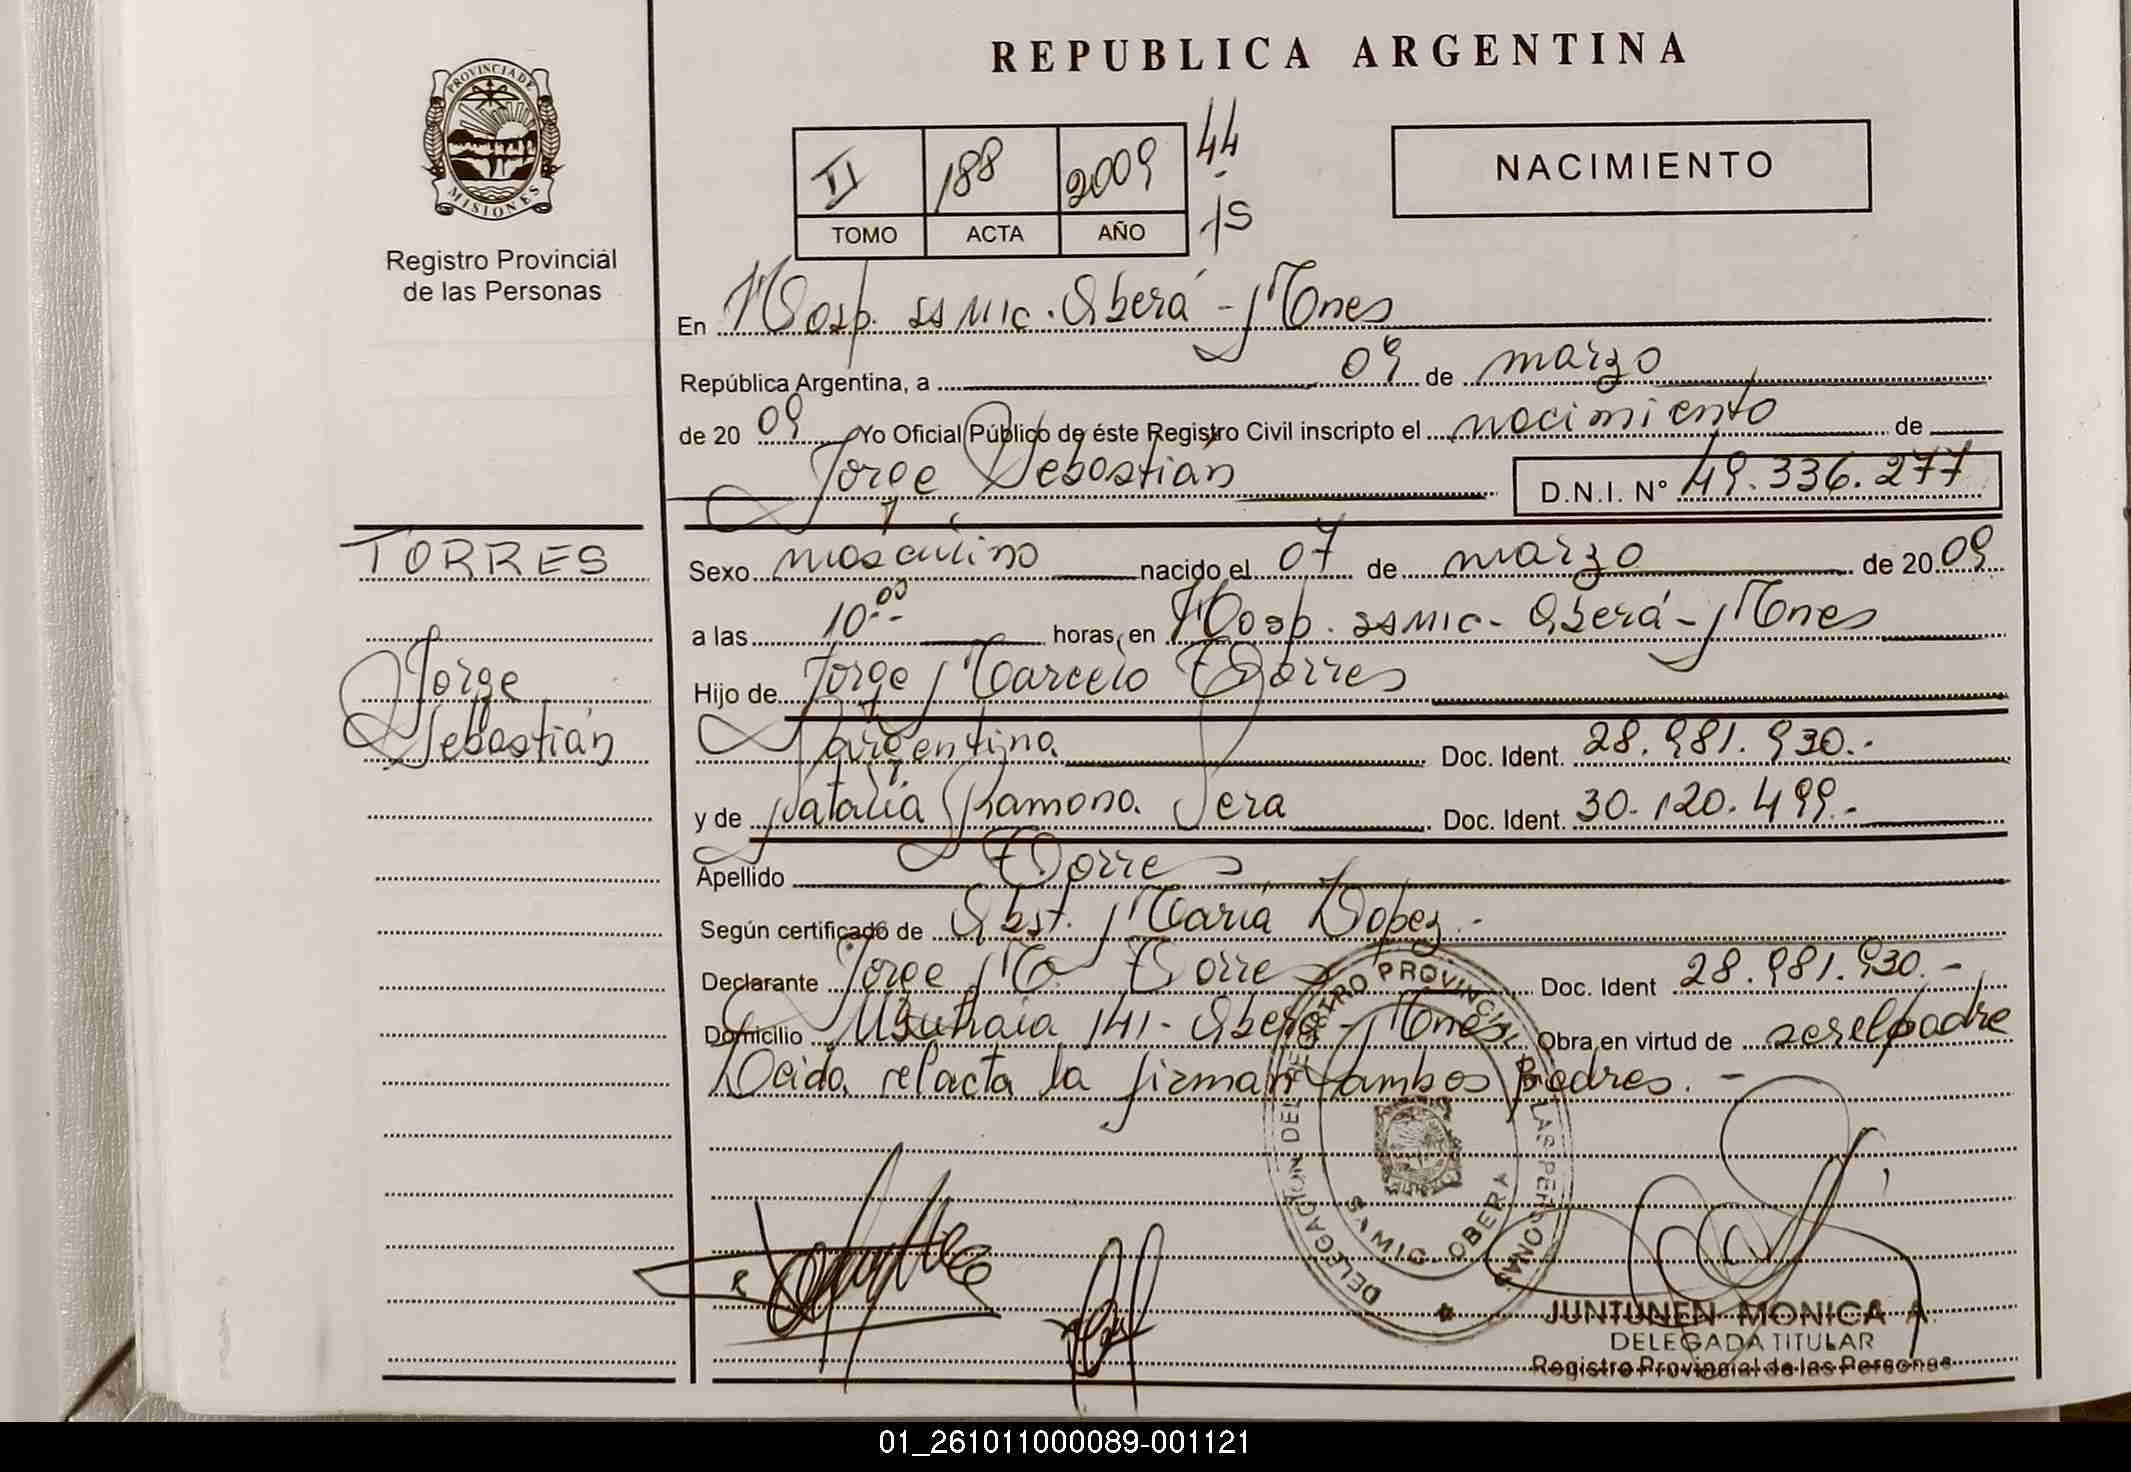 REPUBLICA ARGENTINA
PROVINCIA DE
MISIONES
Registro Provincial
de las Personas
II 188 2009 44
TOMO ACTA AÑO 15
NACIMIENTO
En Hosp. SAMIC. Oberá - Mnes
República Argentina, a 09 de marzo
de 20 09 Yo Oficial Público de éste Registro Civil inscripto el nacimiento de
Jorge Sebastián D.N.I. Nº 49.336.277
TORRES
Jorge
Sebastián
Sexo masculino nacido el 07 de marzo de 20 09
a las 10:00 horas, en Hosp. SAMIC - Oberá - Mnes
Hijo de Jorge Marcelo Torres
argentina Doc. Ident. 28.981.930.-
y de Natalia Ramona Vera Doc. Ident. 30.120.499.-
Apellido Torres
Según certificado de Obst. María Lopez.-
Declarante Jorge M. Torres Doc. Ident 28.981.930.-
Domicilio Ushuaia 141 - Oberá - Mnes. Obra en virtud de ser el padre
Leida el acta la firman ambos padres. -
DELEGACION DEL REGISTRO PROVINCIAL DE LAS PERSONAS
SAMIC - OBERA
JUNTUNEN MONICA A.
DELEGADA TITULAR
Registro Provincial de las Personas
01_261011000089-001121